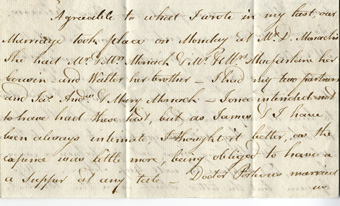 Agreeable to what I wrote in my last, our
Marriage took place on Monday at Mr. D. Manach's
She had Mr. & Mrs. Manach & Mr. & Mrs. her
cousin and Walter her brother – I had my two partners
and Mary Manach – I once intended not
to have had these last, but as James & I have
been always intimate I thought it better, as the
expence was little more, being obliged to have a
a supper at any rate – Doctor Perkins married
us